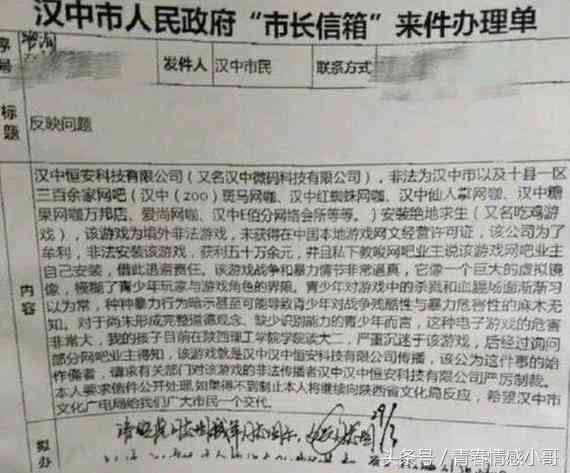 汉中市人民政府“市长信箱”来件办理单
序号
发件人 汉中市民 联系方式
标题 反映问题
汉中恒安科技有限公司（又名汉中微码科技有限公司），非法为汉中市以及十县一区
三百余家网吧（汉中（zoo）斑马网咖、汉中红蜘蛛网咖、汉中仙人掌网咖、汉中糖
果网咖万邦店、爱尚网咖、汉中E佰分网络会所等等。）安装绝地求生（又名吃鸡游
戏），该游戏为墙外非法游戏，未获得在中国本地游戏网文经营许可证，该公司为了
牟利，非法安装该游戏，获利五十万余元，并且私下教唆网吧业主说该游戏网吧业主
自己安装，借此逃避责任。该游戏战争和暴力情节非常逼真，它像一个巨大的虚拟镜
像，模糊了青少年玩家与游戏角色的界限。青少年对游戏中的杀戮和血腥场面渐渐习
以为常，种种暴力行为暗示甚至可能导致青少年对战争残酷性与暴力危害性的麻木无
知。对于尚未形成完整道德观念、缺少识别能力的青少年而言，这种电子游戏的危害
非常大，我的孩子目前在陕西理工学院学院读大二，严重沉迷于该游戏，后经过询问
部分网吧业主得知，该游戏就是汉中汉中恒安科技有限公司传播，该公为这件事的始
作俑者，请求有关部门对该游戏的非法传播者汉中汉中恒安科技有限公司严厉制裁。
本人要求信件公开处理,如果得不到制止本人将继续向陕西省文化局反应，希望汉中市
文化广电局给我们广大市民一个交代。
内容
拟办
头条号／青春情感小哥